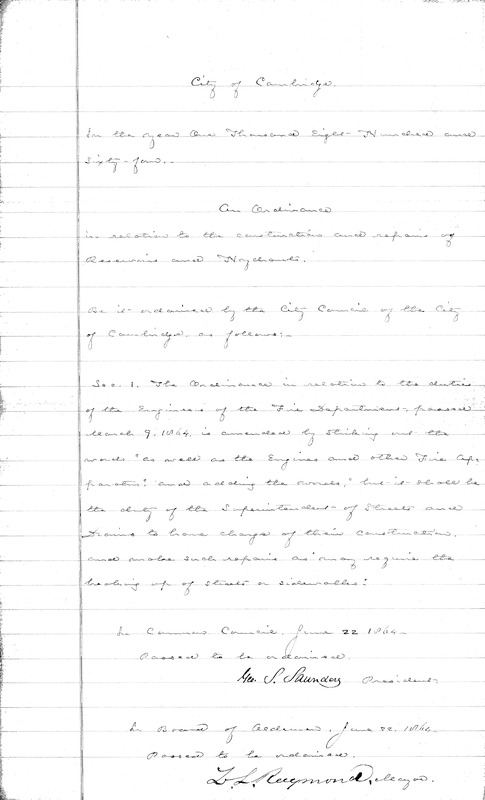 City of Cambridge.
In the year One Thousand Eight Hundred and
Sixty-four.
An Ordinance
in relation to the construction and repairs of
Reservoirs and Hydrants.
Be it ordained by the City Council of the City
of Cambridge, as follows:-
Sec. 1. The Ordinance in relation to the duties
of the Engineers of the Fire Department, passed
March 9, 1864, is amended by striking out the
words "as well as the Engines and other Fire Ap-
paratus," and adding the words, "but it shall be
the duty of the Superintendent of Streets and
Drains to have charge of their construction,
and make such repairs as may require the
breaking up of streets or sidewalks."
In Common Council, June 22 1864.
Passed to be ordained.
Geo. S. Saunders President.
In Board of Aldermen, June 22, 1864.
Passed to be ordained.
Z. L. Raymond, Mayor.